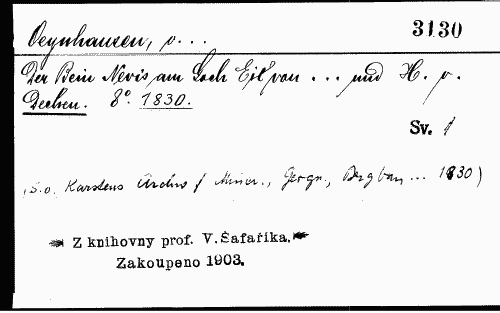 Oeynhausen, v. ...
3130
Der Bein Nevis, am Loch Eil von ... und H. v.
Dechen. 8° 1830.
Sv. 1
(S. o. Karstens Archiv f Miner., Geogn., Bergbau ... 1830)
Z knihovny prof. V. Šafaříka.
Zakoupeno 1903.